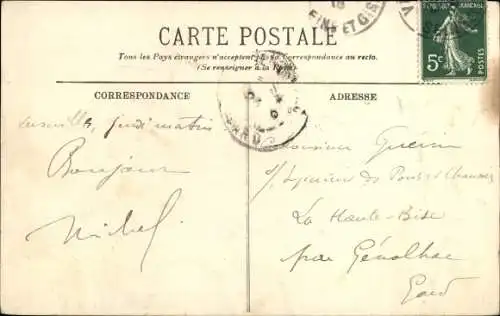 CARTE POSTALE
Tous les Pays étrangers n'acceptent pas la Correspondance au recto.
(Se renseigner à la Poste).
RÉPUBLIQUE FRANÇAISE
5c
SEINE ET OISE
CORRESPONDANCE
ADRESSE
Versailles, jeudi matin
Bonjour
Michel
Monsieur Guérin
des Ponts et Chaussées
La Haute-Bise
par Génolhac
Gard